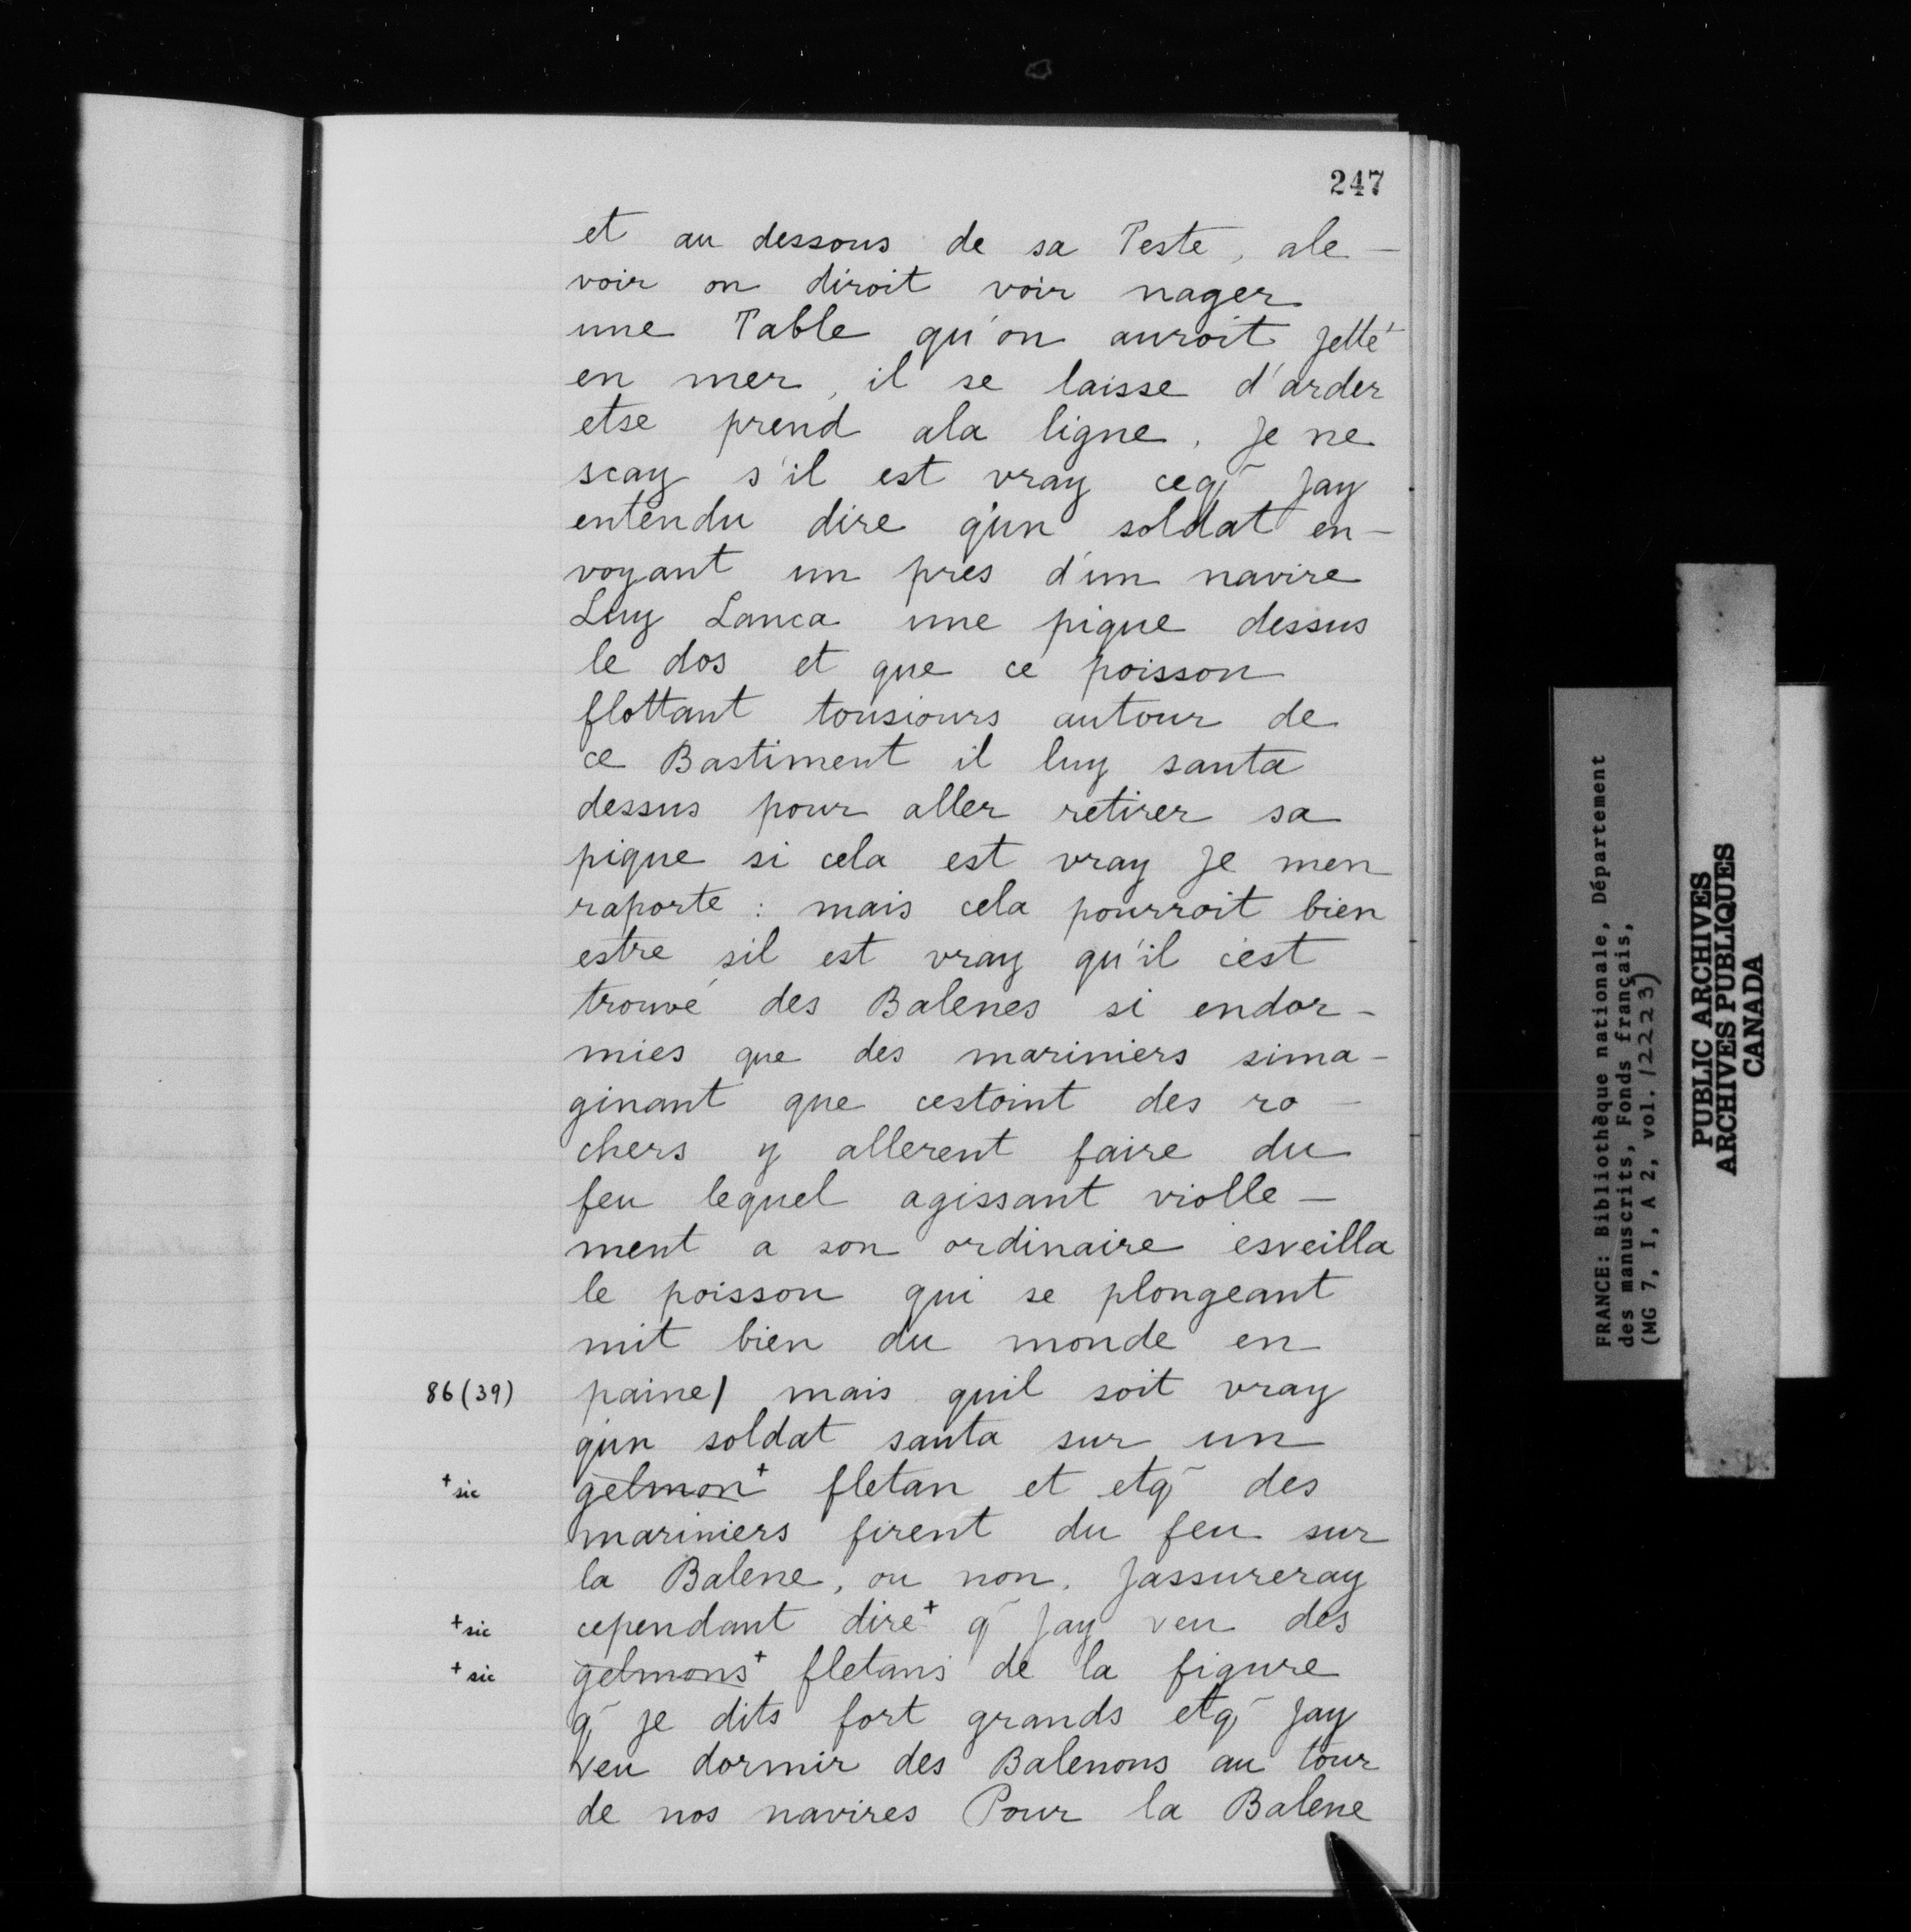 247
et au dessous de sa Teste, ale-
voir on diroit voir nager
une Table qu'on auroit jetté
en mer, il se laisse d'arder
etse prend ala ligne. Je ne
scay s'il est vray ceq̃ jay
entendu dire q'un soldat en-
voyant un pres d'un navire
Luy Lanca une pique dessus
le dos et que ce poisson
flottant tousiours autour de
ce Bastiment il luy sauta
dessus pour aller retirer sa
pique si cela est vray Je men
raporte : mais cela pourroit bien
estre sil est vray qu'il c'est
trouvé des Balenes si endor-
mies que des mariniers sima-
ginant que cestoint des ro-
chers y allerent faire du
feu lequel agissant violle-
ment a son ordinaire esveilla
le poisson qui se plongeant
mit bien du monde en
86 (39) paine/ mais quil soit vray
q'un soldat sauta sur un
+sic gelmon+ fletan et etq̃ des
mariniers firent du feu sur
la Balene, ou non. Jassureray
+sic cependant dire+ q̃ jay veu des
+sic gelmons+ fletans de la figure
q̃ je dits fort grands etq̃ jay
veu dormir des Balenons au tour
de nos navires Pour la Balene
FRANCE: Bibliothèque nationale, Département
des manuscrits, Fonds français,
(MG 7, I, A 2, vol. 12223)
PUBLIC ARCHIVES
ARCHIVES PUBLIQUES
CANADA